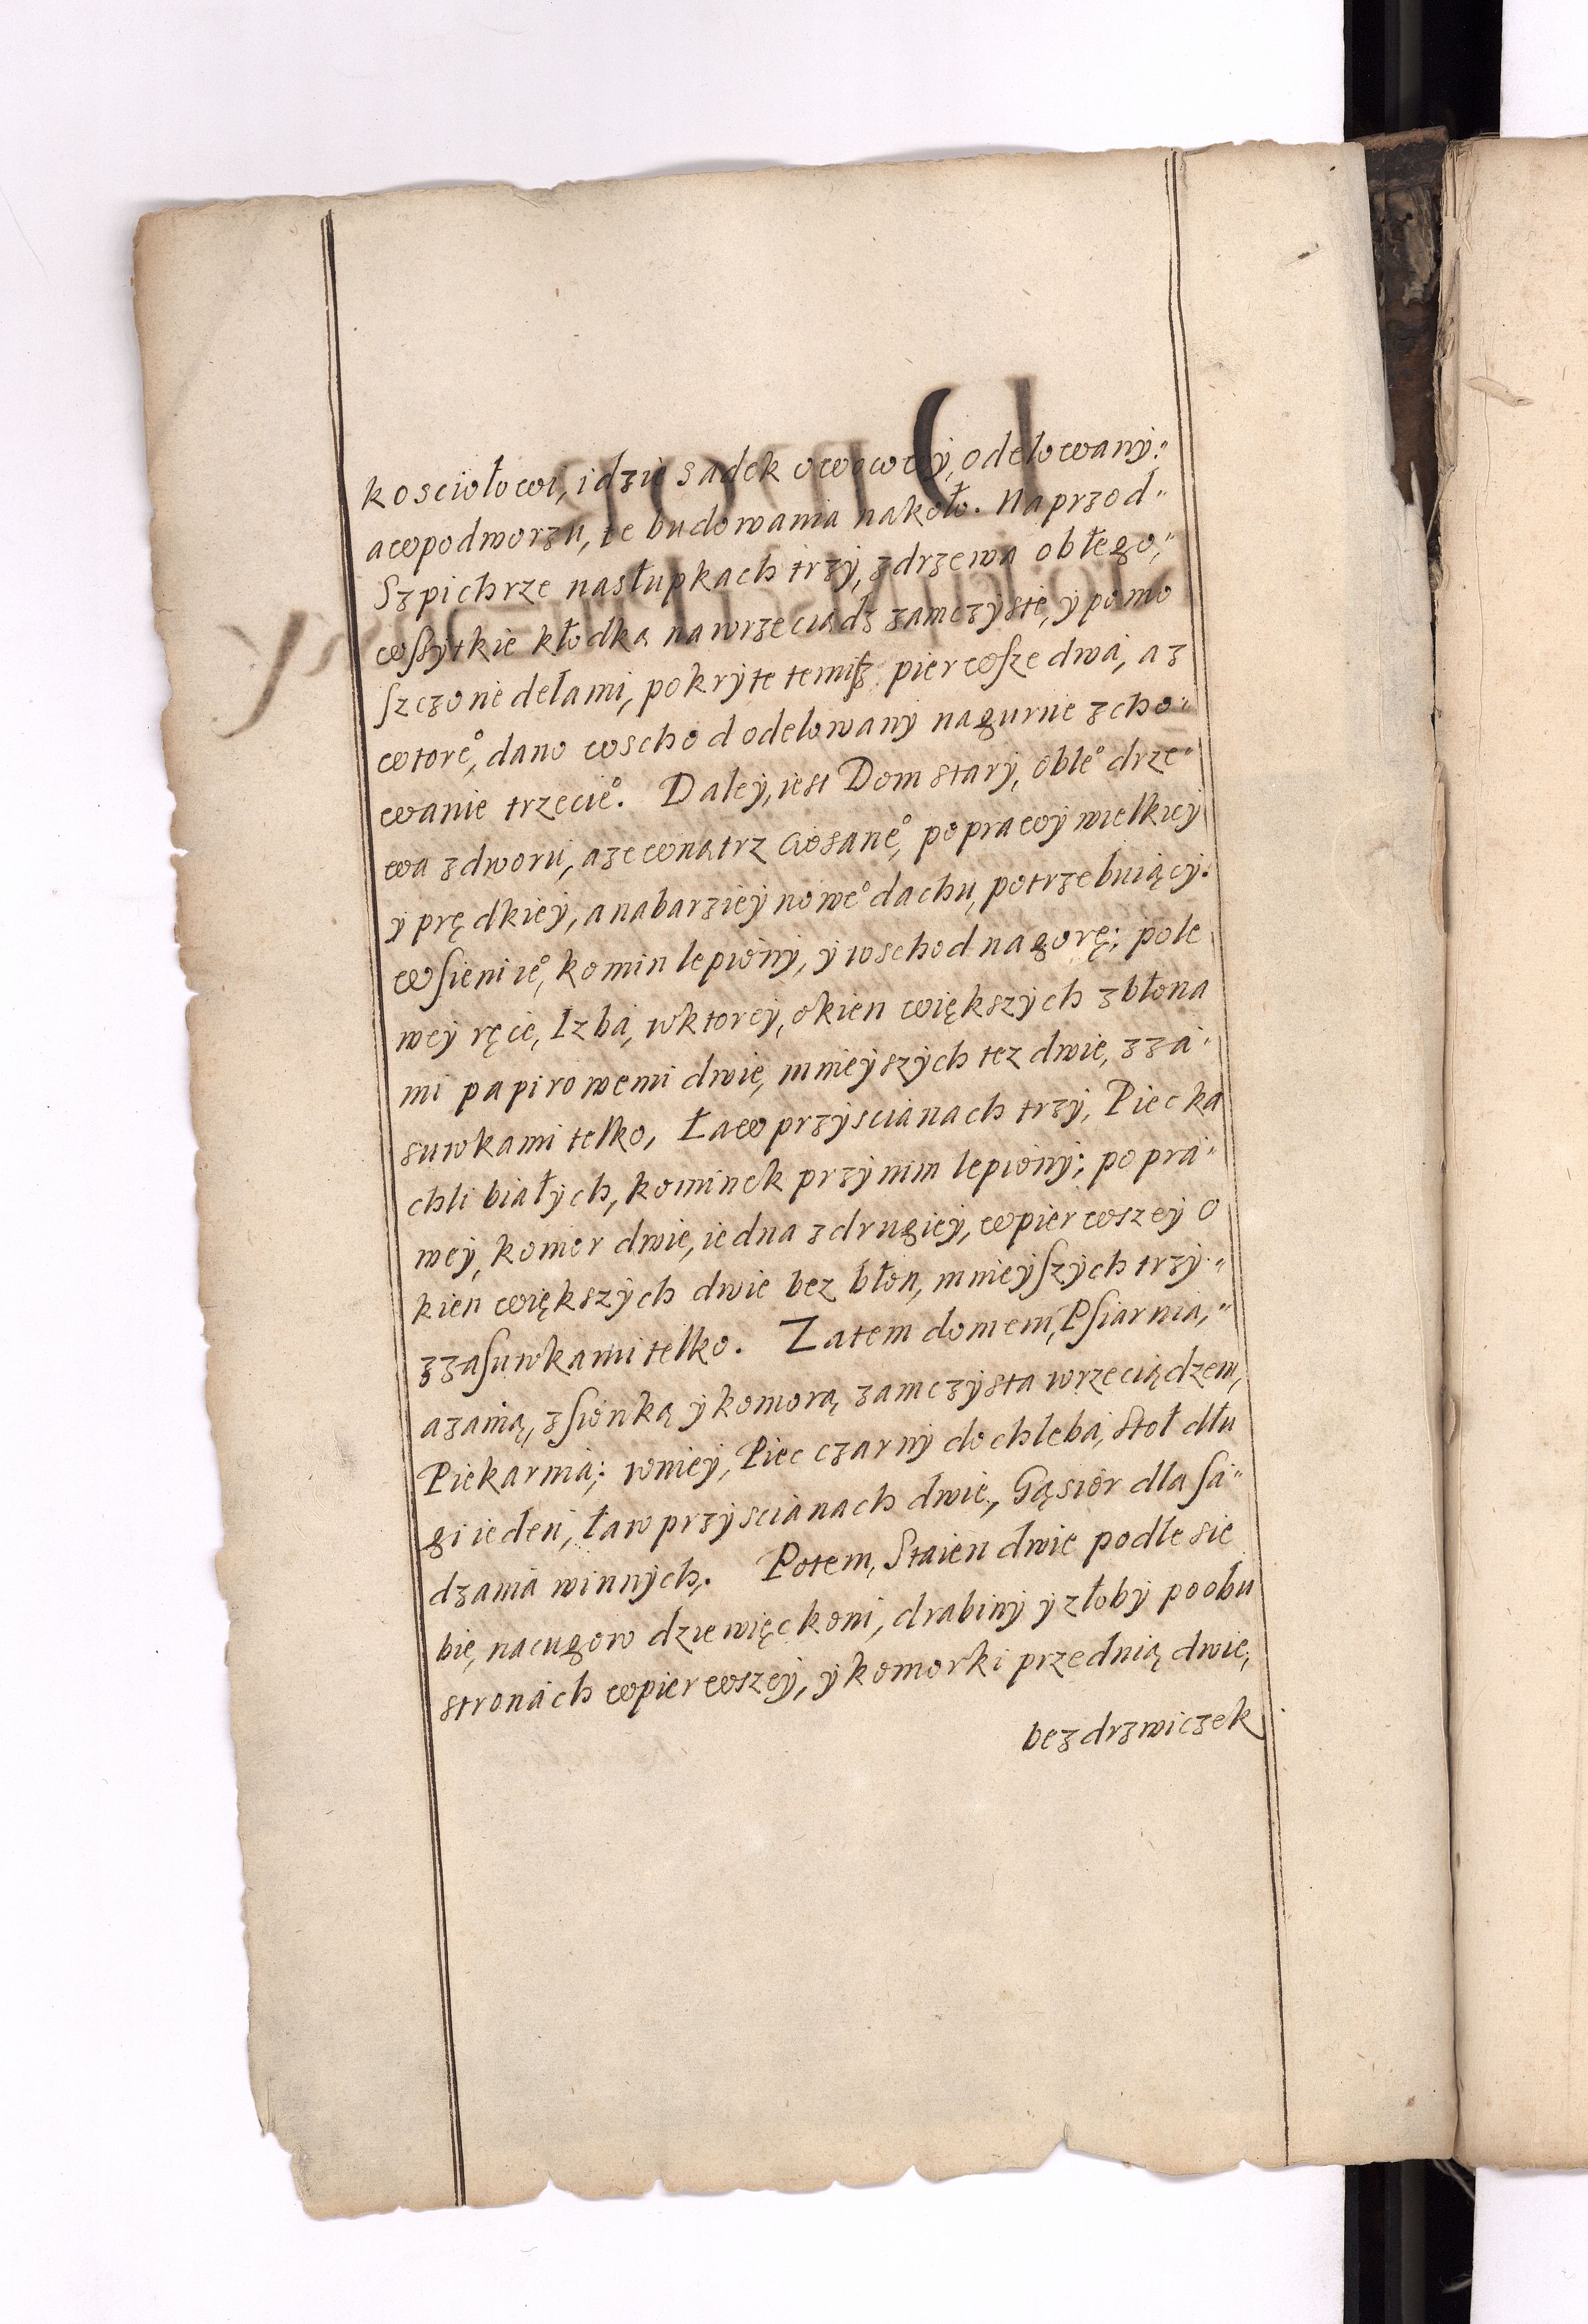 kosciołowi, idzie sadek owocowy, odelowany:
a wpodworzu, te budowania nakoło. Naprzod
Szpichrze nasłupkach trzy, z drzewa obłego,
wssytkie kłodką na wrzeciądz zamczyste, y pomo
szczone delami, pokryte temisz pierwsze dwa, a z
wtore°, dano wschod odelowany nagurne zcho
wanie trzecie°. Daley, iest Dom stary, oble° drze
wa z dworu, a ze wnątrz ciosane°, poprawy wielkiey
y prędkiey, a nabarziey nowe° dachu, potrzebuiący.
w sieni ie°, komin lepiony, y wschod na gorę; po le
wey ręce, Izba, w ktorey, okien większych z błona
mi papirowemi dwie, mnieyszych tez dwie, z za
suwkami telko, Ław przy scianach trzy, Piec ka
chli białych, kominek przy nim lepiony; po pra
wey, komor dwie, iedna z drugiey, w pierwszey o
kien większych dwie bez błon, mnieyszych trzy
z zasuwkami telko. Za tem domem, Psiarnia,
a za nią, z sionką y komorą zamczysta wrzeciądzem,
Piekarnia; w niey, Piec czarny do chleba, stoł dłu
gi ieden, ław przy scianach dwie, Gąsior dla sa
dzania winnych. Potem, Staien dwie podle sie
bie, na cugow dziewięc koni, drabiny y złoby po obu
stronach w pierwszey, y komorki przed nią dwie,
bez drzwiczek